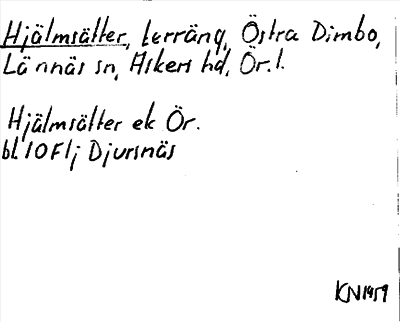 Hjälmsätter, Lerräng, Östra Dimbo,
Lännäs sn, Askers hd, Ör. l.
Hjälmsätter ek Ör.
bl 10F1j Djursnäs
KN1959